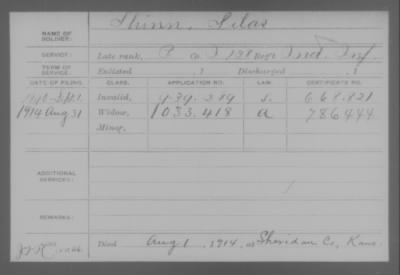 Shinn, Silas
NAME OF SOLDIER:
SERVICE: Late rank, P. Co. I 128 Reg't Ind. Inf.
TERM OF SERVICE: Enlisted , 1 Discharged , 1
DATE OF FILING. CLASS. APPLICATION NO. LAW. CERTIFICATE NO.
1890 Sept Invalid, 939.
1914 Aug 31 Widow, 1033.418 a 786444
Minor,
ADDITIONAL SERVICES:
REMARKS:
Died Aug 1, 1914, at Sheridan Co, Kans.